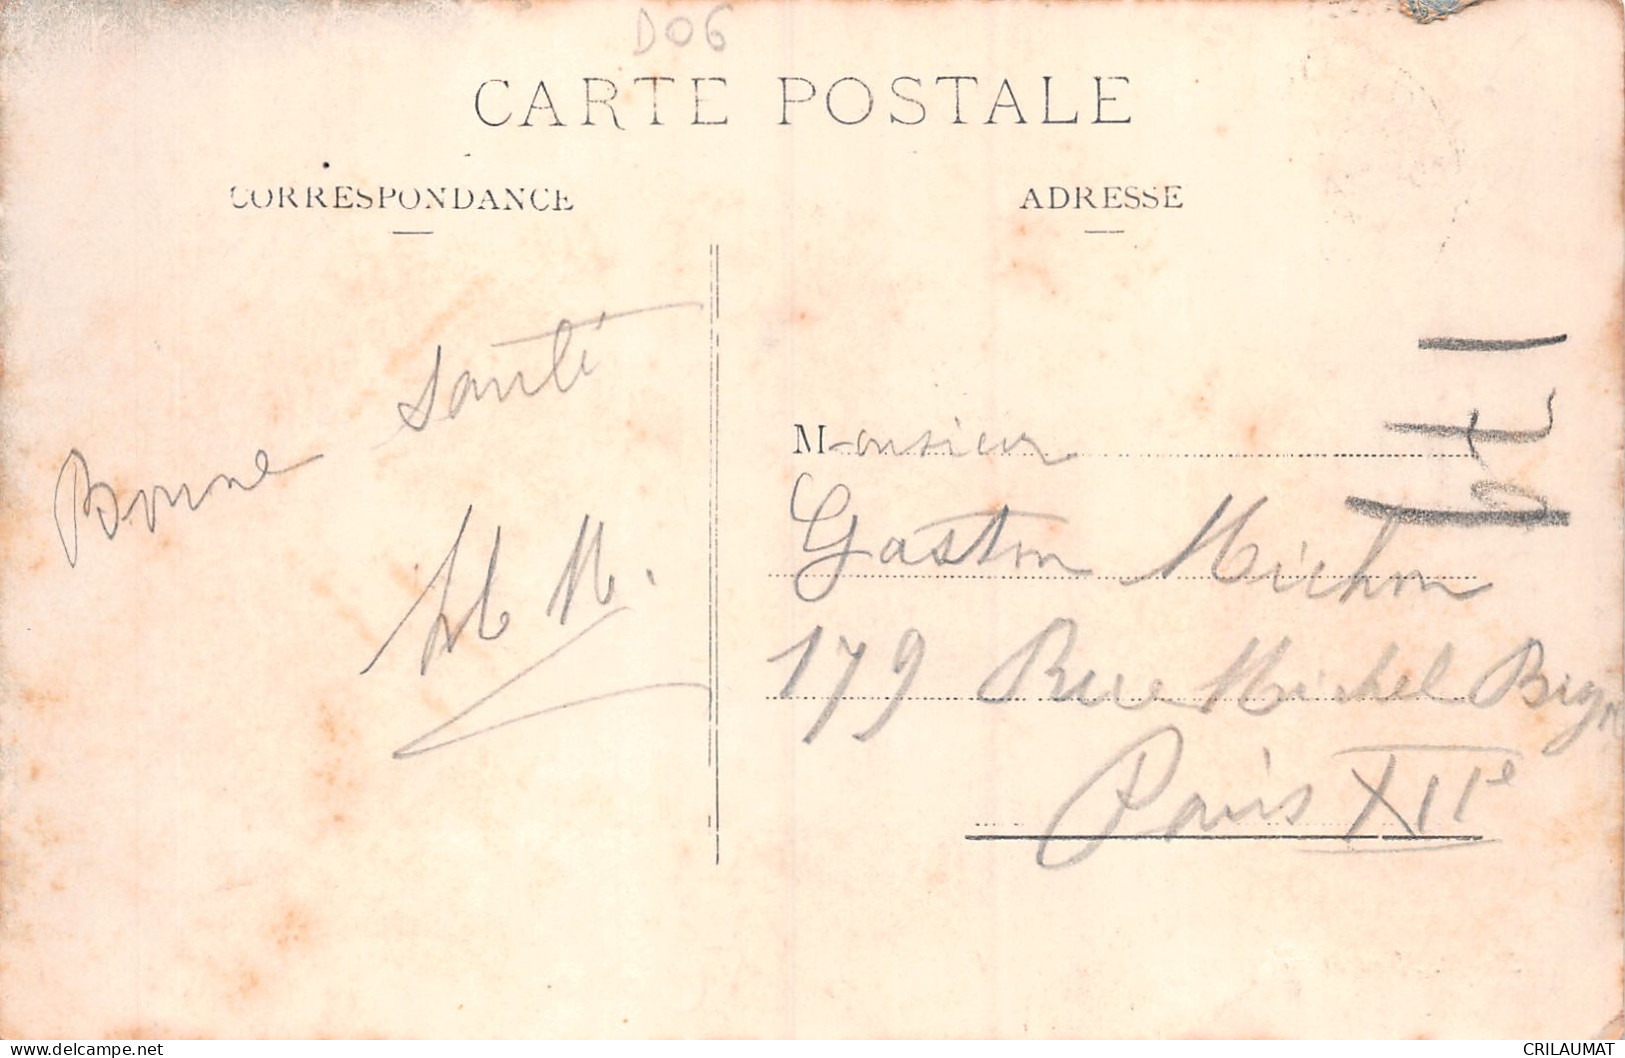 D06
CARTE POSTALE
CORRESPONDANCE
ADRESSE
Bonne santé
Monsieur
Gaston Michon
179 Rue Michel Biz
Paris XIIe
delcampe.net
CRILAUMAT